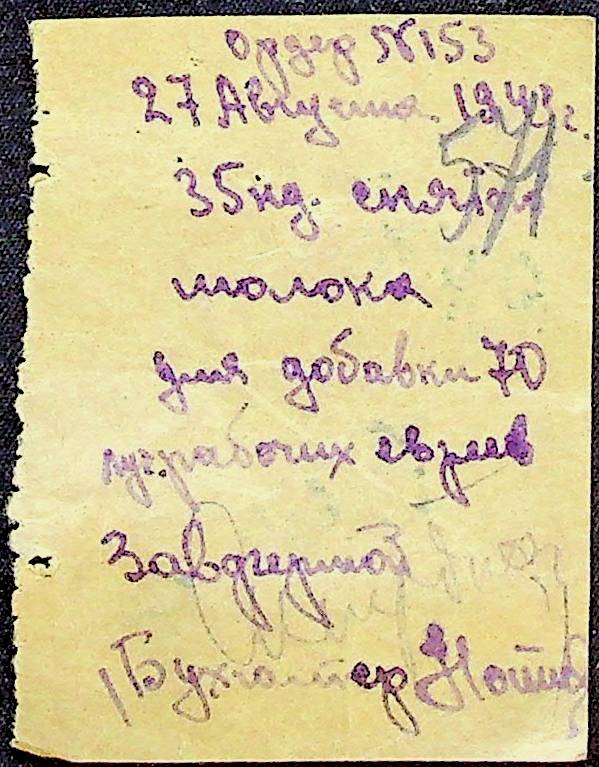 Ордер №153
27 Августа 194
35 кг. снятка
молока
для добавки 70
рабочих евреев
Завфермой
Бухгалтер
571